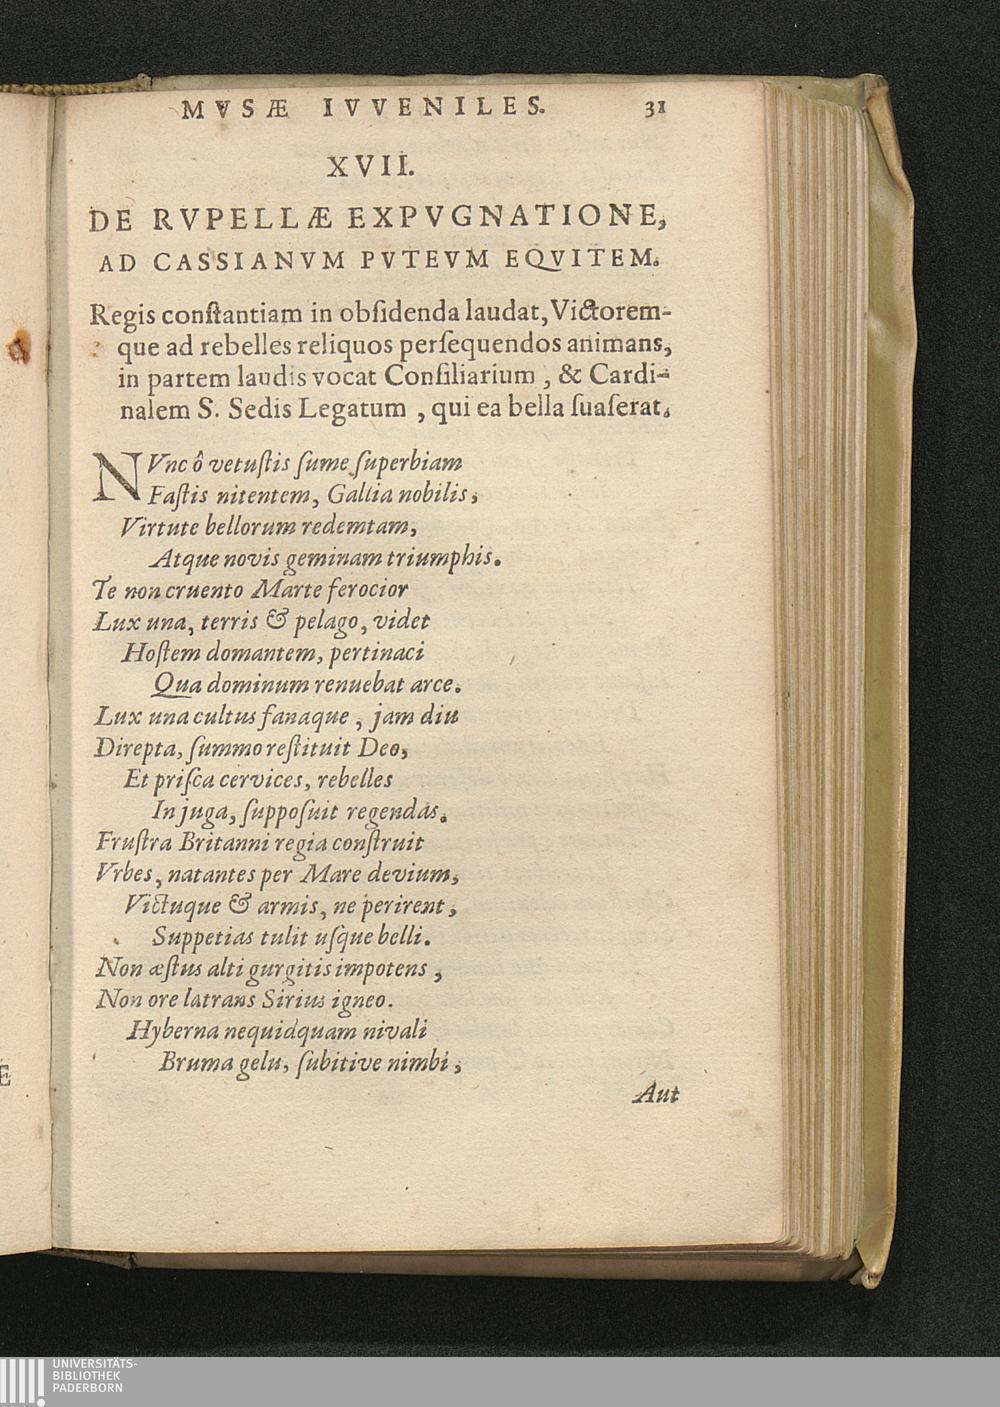 MVSÆ IVVENILES. 31
XVII.
DE RVPELLÆ EXPVGNATIONE,
AD CASSIANVM PVTEVM EQVITEM.
Regis conſtantiam in obſidenda laudat, Victorem-
que ad rebelles reliquos perſequendos animans,
in partem laudis vocat Conſiliarium, & Cardi-
nalem S. Sedis Legatum, qui ea bella ſuaſerat.
NVnc ô vetuſtis ſume ſuperbiam
Faſtis nitentem, Gallia nobilis,
Virtute bellorum redemtam,
Atque novis geminam triumphis.
Te non cruento Marte ferocior
Lux una, terris & pelago, videt
Hoſtem domantem, pertinaci
Qua dominum renuebat arce.
Lux una cultus fanaque, jam diu
Direpta, ſummo reſtituit Deo,
Et priſca cervices, rebelles
In juga, ſuppoſuit regendas.
Fruſtra Britanni regia conſtruit
Vrbes, natantes per Mare devium,
Victuque & armis, ne perirent,
Suppetias tulit uſque belli.
Non æſtus alti gurgitis impotens,
Non ore latrans Sirius igneo.
Hyberna nequidquam nivali
Bruma gelu, ſubitive nimbi,
Aut
Æ
UNIVERSITÄTS-
BIBLIOTHEK
PADERBORN